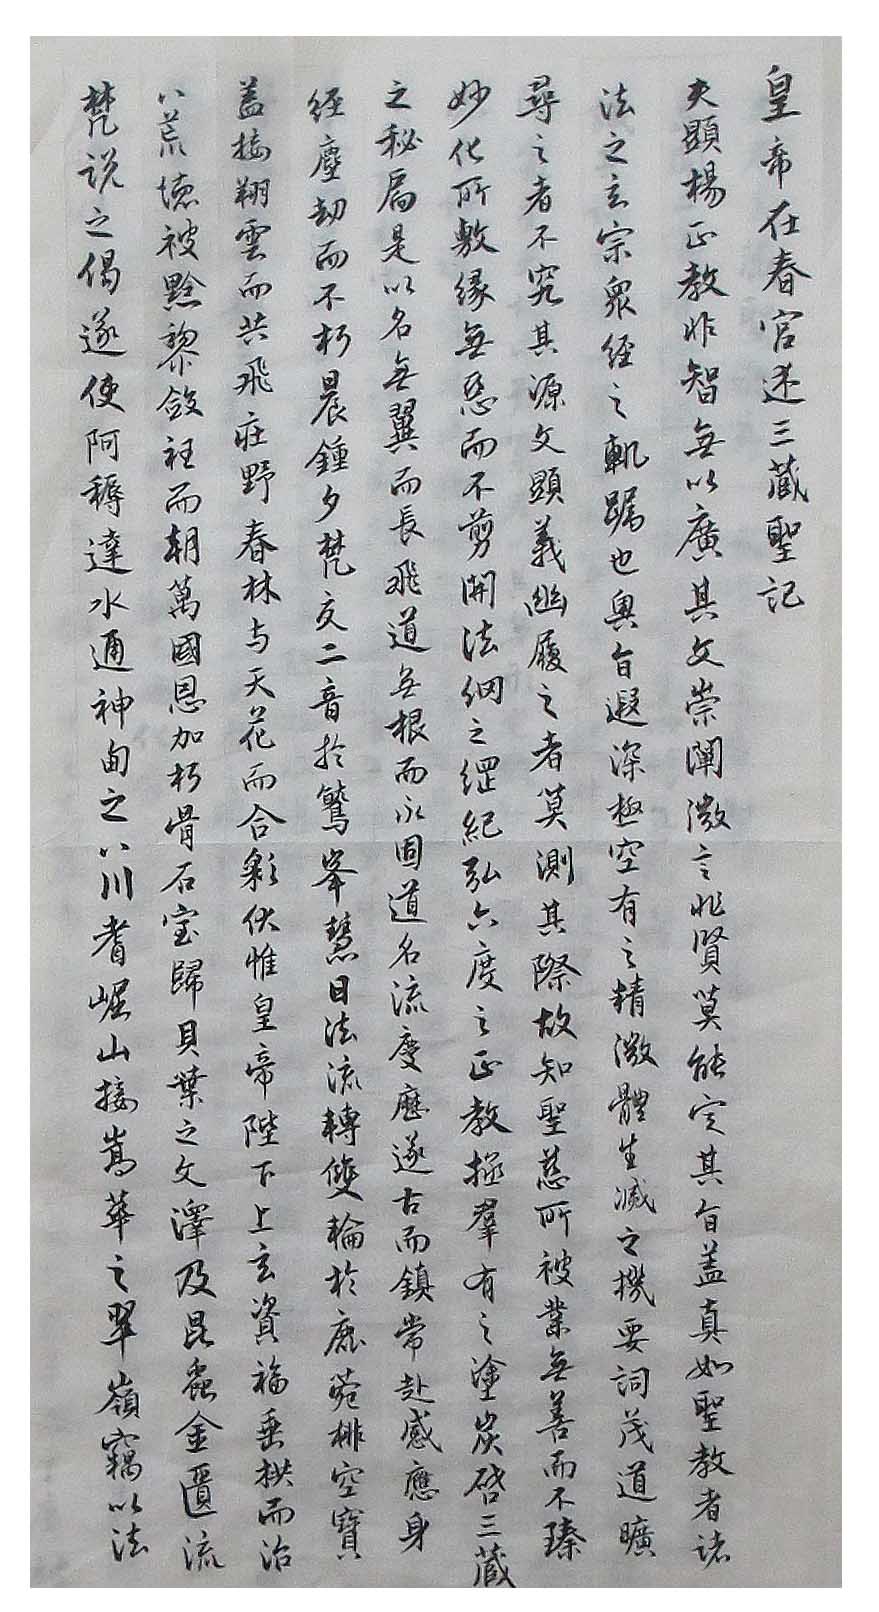 皇帝在春宮述三藏聖記
夫顯楊正教非智無以廣其文崇闡微言非賢莫能定其旨蓋真如聖教者諸
法之玄宗衆經之軌躅也奧旨遐深極空有之精微體生滅之機要詞茂道曠
尋之者不究其源文顯義幽履之者莫測其際故知聖慈所被業無善而不臻
妙化所敷緣無惡而不剪開法網之綱紀弘六度之正教拯羣有之塗炭啓三藏
之秘扃是以名無翼而長飛道無根而永固道名流慶歷遂古而鎮常赴感應身
經塵劫而不朽晨鍾夕梵交二音於鷲峯慧日法流轉雙輪於鹿菀排空寶
蓋接翔雲而共飛莊野春林与天花而合彩伏惟皇帝陛下上玄資福垂拱而治
八荒德被黔黎斂衽而朝萬國恩加朽骨石室歸貝葉之文澤及昆蟲金匱流
梵説之偈遂使阿耨達水通神甸之八川耆崛山接嵩華之翠嶺竊以法